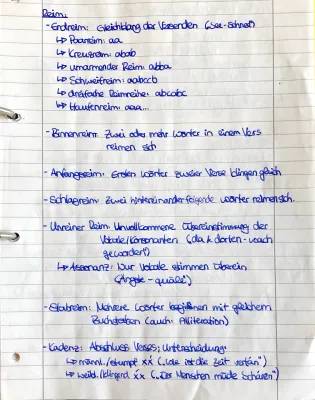 Reim:
- Endreim: Gleichklang der Versenden (See - Schnee)
↳ Paarreim: aa
↳ Kreuzreim: abab
↳ umarmender Reim: abba
↳ Schweifreim: aabccb
↳ dreifache Reimreihe: abcabc
↳ Haufenreim: aaa...
- Binnenreim: Zwei oder mehr Wörter in einem Vers
reimen sich
- Anfangsreim: Ersten Wörter zweier Verse klingen gleich
- Schlagreim: Zwei hintereinander folgende Wörter reimen sich.
- Unreiner Reim: Unvollkommene Übereinstimmung der
Vokale/Konsonanten
↳ Assonanz: Nur Vokale stimmen überein
- Stabreim: Mehrere Wörter beginnen mit gleichem
Buchstaben (auch: Alliteration)
- Kadenz: Abschluss Verses; Unterscheidung:
↳ männl./stumpf xx́ ("ist die Zeit vertan")
↳ weibl./klingend x́x ("Der Menschen müde Scharen")